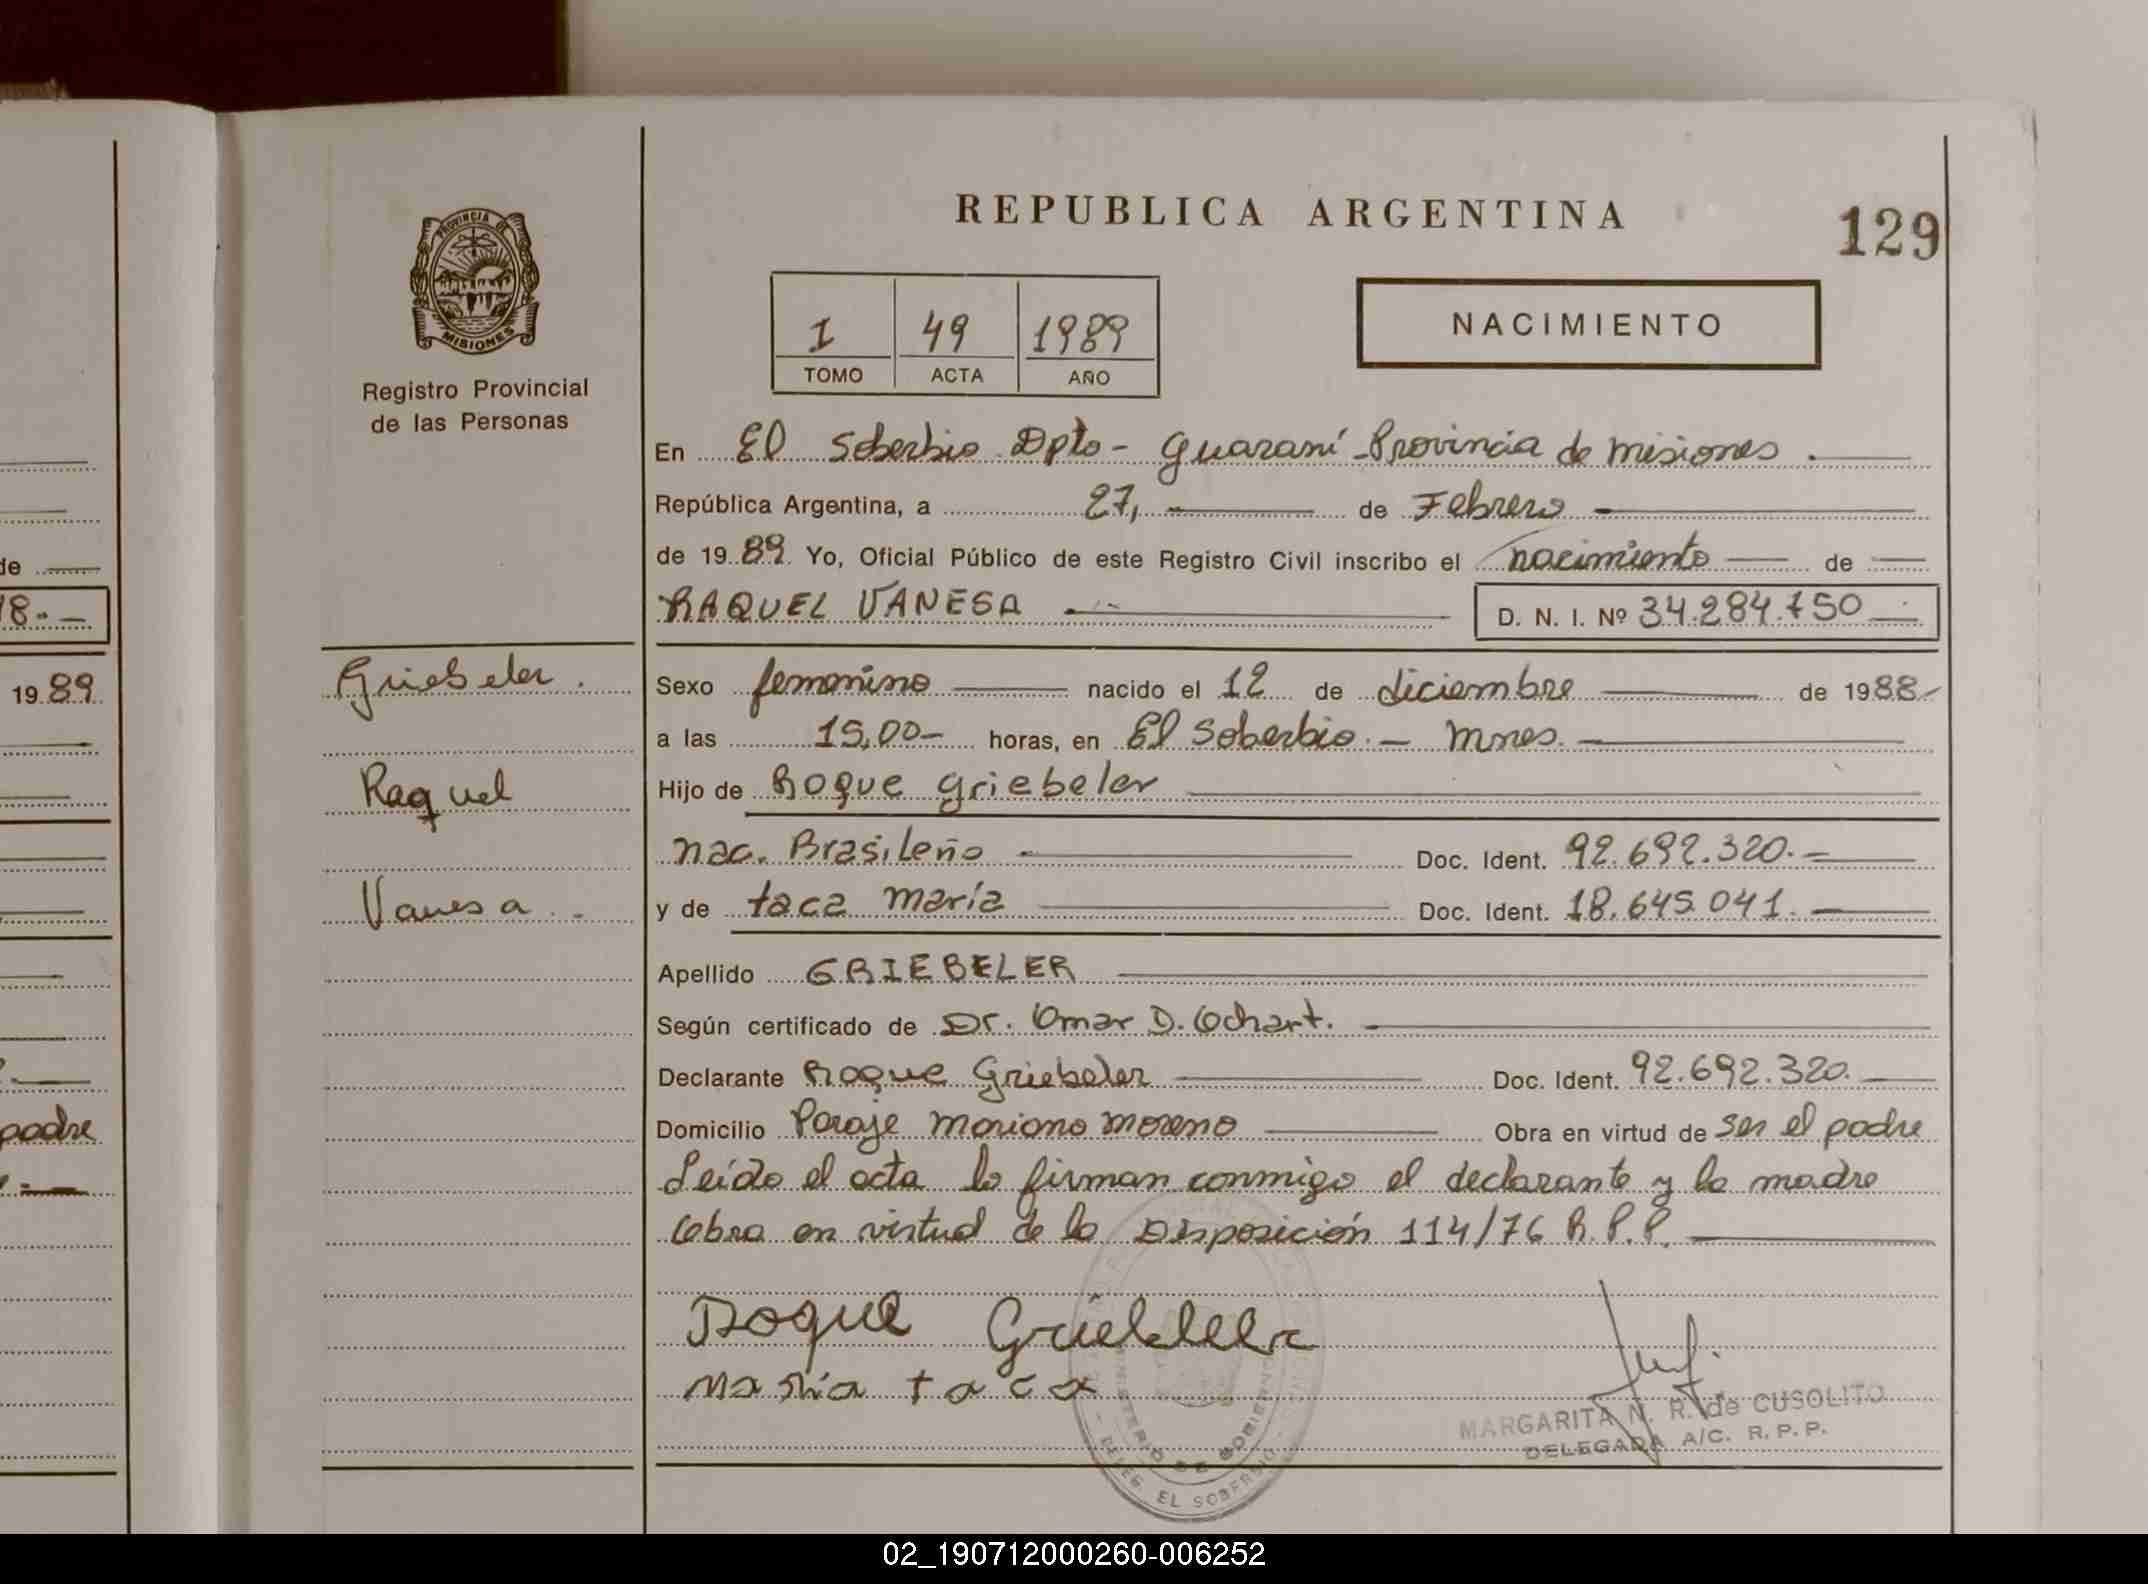 REPUBLICA ARGENTINA
129
PROVINCIA DE
MISIONES
Registro Provincial
de las Personas
I 49 1989
TOMO ACTA AÑO
NACIMIENTO
En El Soberbio Dpto - Guaraní - Provincia de Misiones.
República Argentina, a 27, de Febrero
de 1989. Yo, Oficial Público de este Registro Civil inscribo el nacimiento de
RAQUEL VANESA D. N. I. Nº 34.284.750
Sexo femenino nacido el 12 de diciembre de 1988-
a las 15,00- horas, en El Soberbio. - Mnes.
Hijo de Roque Griebeler
nac. Brasileño Doc. Ident. 92.692.320.-
y de taca maría Doc. Ident. 18.645.041.
Apellido GRIEBELER
Según certificado de Dr. Omar D. Ochart.
Declarante Roque Griebeler Doc. Ident. 92.692.320.
Domicilio Paraje Mariano Moreno Obra en virtud de ser el padre
Leída el acta la firman conmigo el declarante y la madre
Obra en virtud de la Disposición 114/76 R.P.P.
Roque Griebeler
Maria taca
MARGARITA N. R. de CUSOLITO
DELEGADA A/C. R. P. P.
MINISTERIO DE GOBIERNO
DELEG. EL SOBERBIO
Griebeler.
Raquel
Vanesa.
de
18.-
1989
padre
02_190712000260-006252